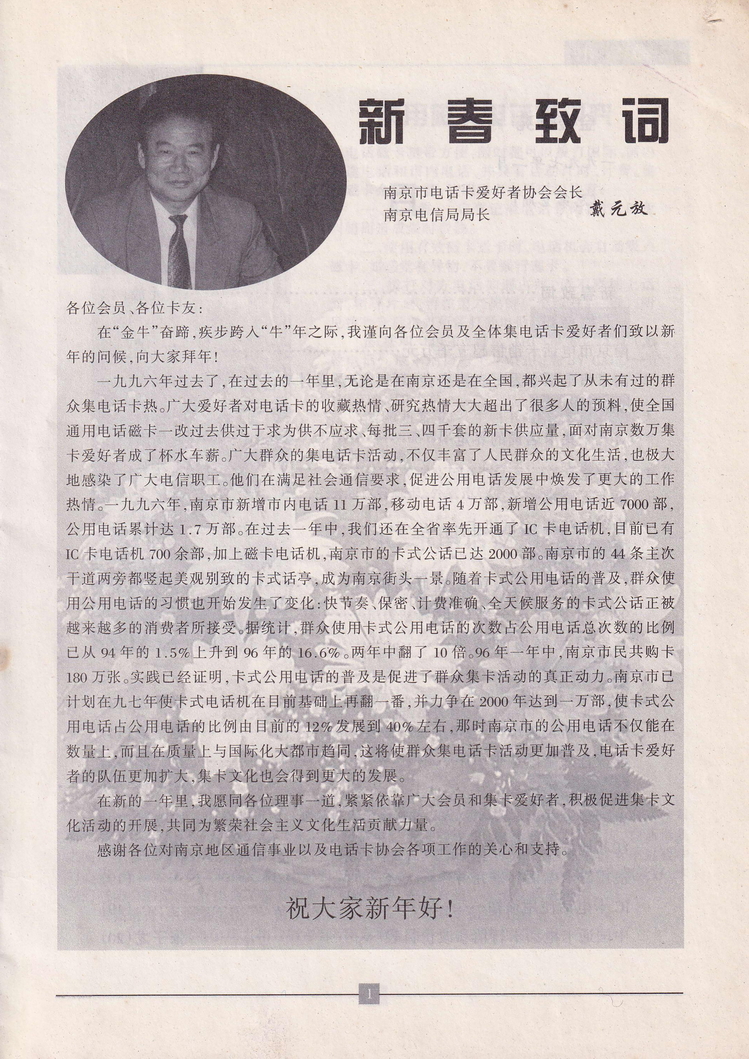 新春致词
南京市电话卡爱好者协会会长
南京电信局局长
戴元放
各位会员、各位卡友:
在“金牛”奋蹄,疾步跨入“牛”年之际,我谨向各位会员及全体集电话卡爱好者们致以新
年的问候,向大家拜年!
一九九六年过去了,在过去的一年里,无论是在南京还是在全国,都兴起了从未有过的群
众集电话卡热。广大爱好者对电话卡的收藏热情、研究热情大大超出了很多人的预料,使全国
通用电话磁卡一改过去供过于求为供不应求、每批三、四千套的新卡供应量,面对南京数万集
卡爱好者成了杯水车薪。广大群众的集电话卡活动,不仅丰富了人民群众的文化生活,也极大
地感染了广大电信职工。他们在满足社会通信要求,促进公用电话发展中焕发了更大的工作
热情。一九九六年,南京市新增市内电话 11 万部,移动电话 4 万部,新增公用电话近 7000 部,
公用电话累计达 1.7 万部。在过去一年中,我们还在全省率先开通了 IC 卡电话机,目前已有
IC 卡电话机 700 余部,加上磁卡电话机,南京市的卡式公话已达 2000 部。南京市的 44 条主次
干道两旁都竖起美观别致的卡式话亭,成为南京街头一景。随着卡式公用电话的普及,群众使
用公用电话的习惯也开始发生了变化:快节奏、保密、计费准确、全天候服务的卡式公话正被
越来越多的消费者所接受。据统计,群众使用卡式公用电话的次数占公用电话总次数的比例
已从 94 年的 1.5%上升到 96 年的 16.6%。两年中翻了 10 倍。96 年一年中,南京市民共购卡
180 万张。实践已经证明,卡式公用电话的普及是促进了群众集卡活动的真正动力。南京市已
计划在九七年使卡式电话机在目前基础上再翻一番,并力争在 2000 年达到一万部,使卡式公
用电话占公用电话的比例由目前的 12%发展到 40%左右,那时南京市的公用电话不仅能在
数量上,而且在质量上与国际化大都市趋同,这将使群众集电话卡活动更加普及,电话卡爱好
者的队伍更加扩大,集卡文化也会得到更大的发展。
在新的一年里,我愿同各位理事一道,紧紧依靠广大会员和集卡爱好者,积极促进集卡文
化活动的开展,共同为繁荣社会主义文化生活贡献力量。
感谢各位对南京地区通信事业以及电话卡协会各项工作的关心和支持。
祝大家新年好!
1